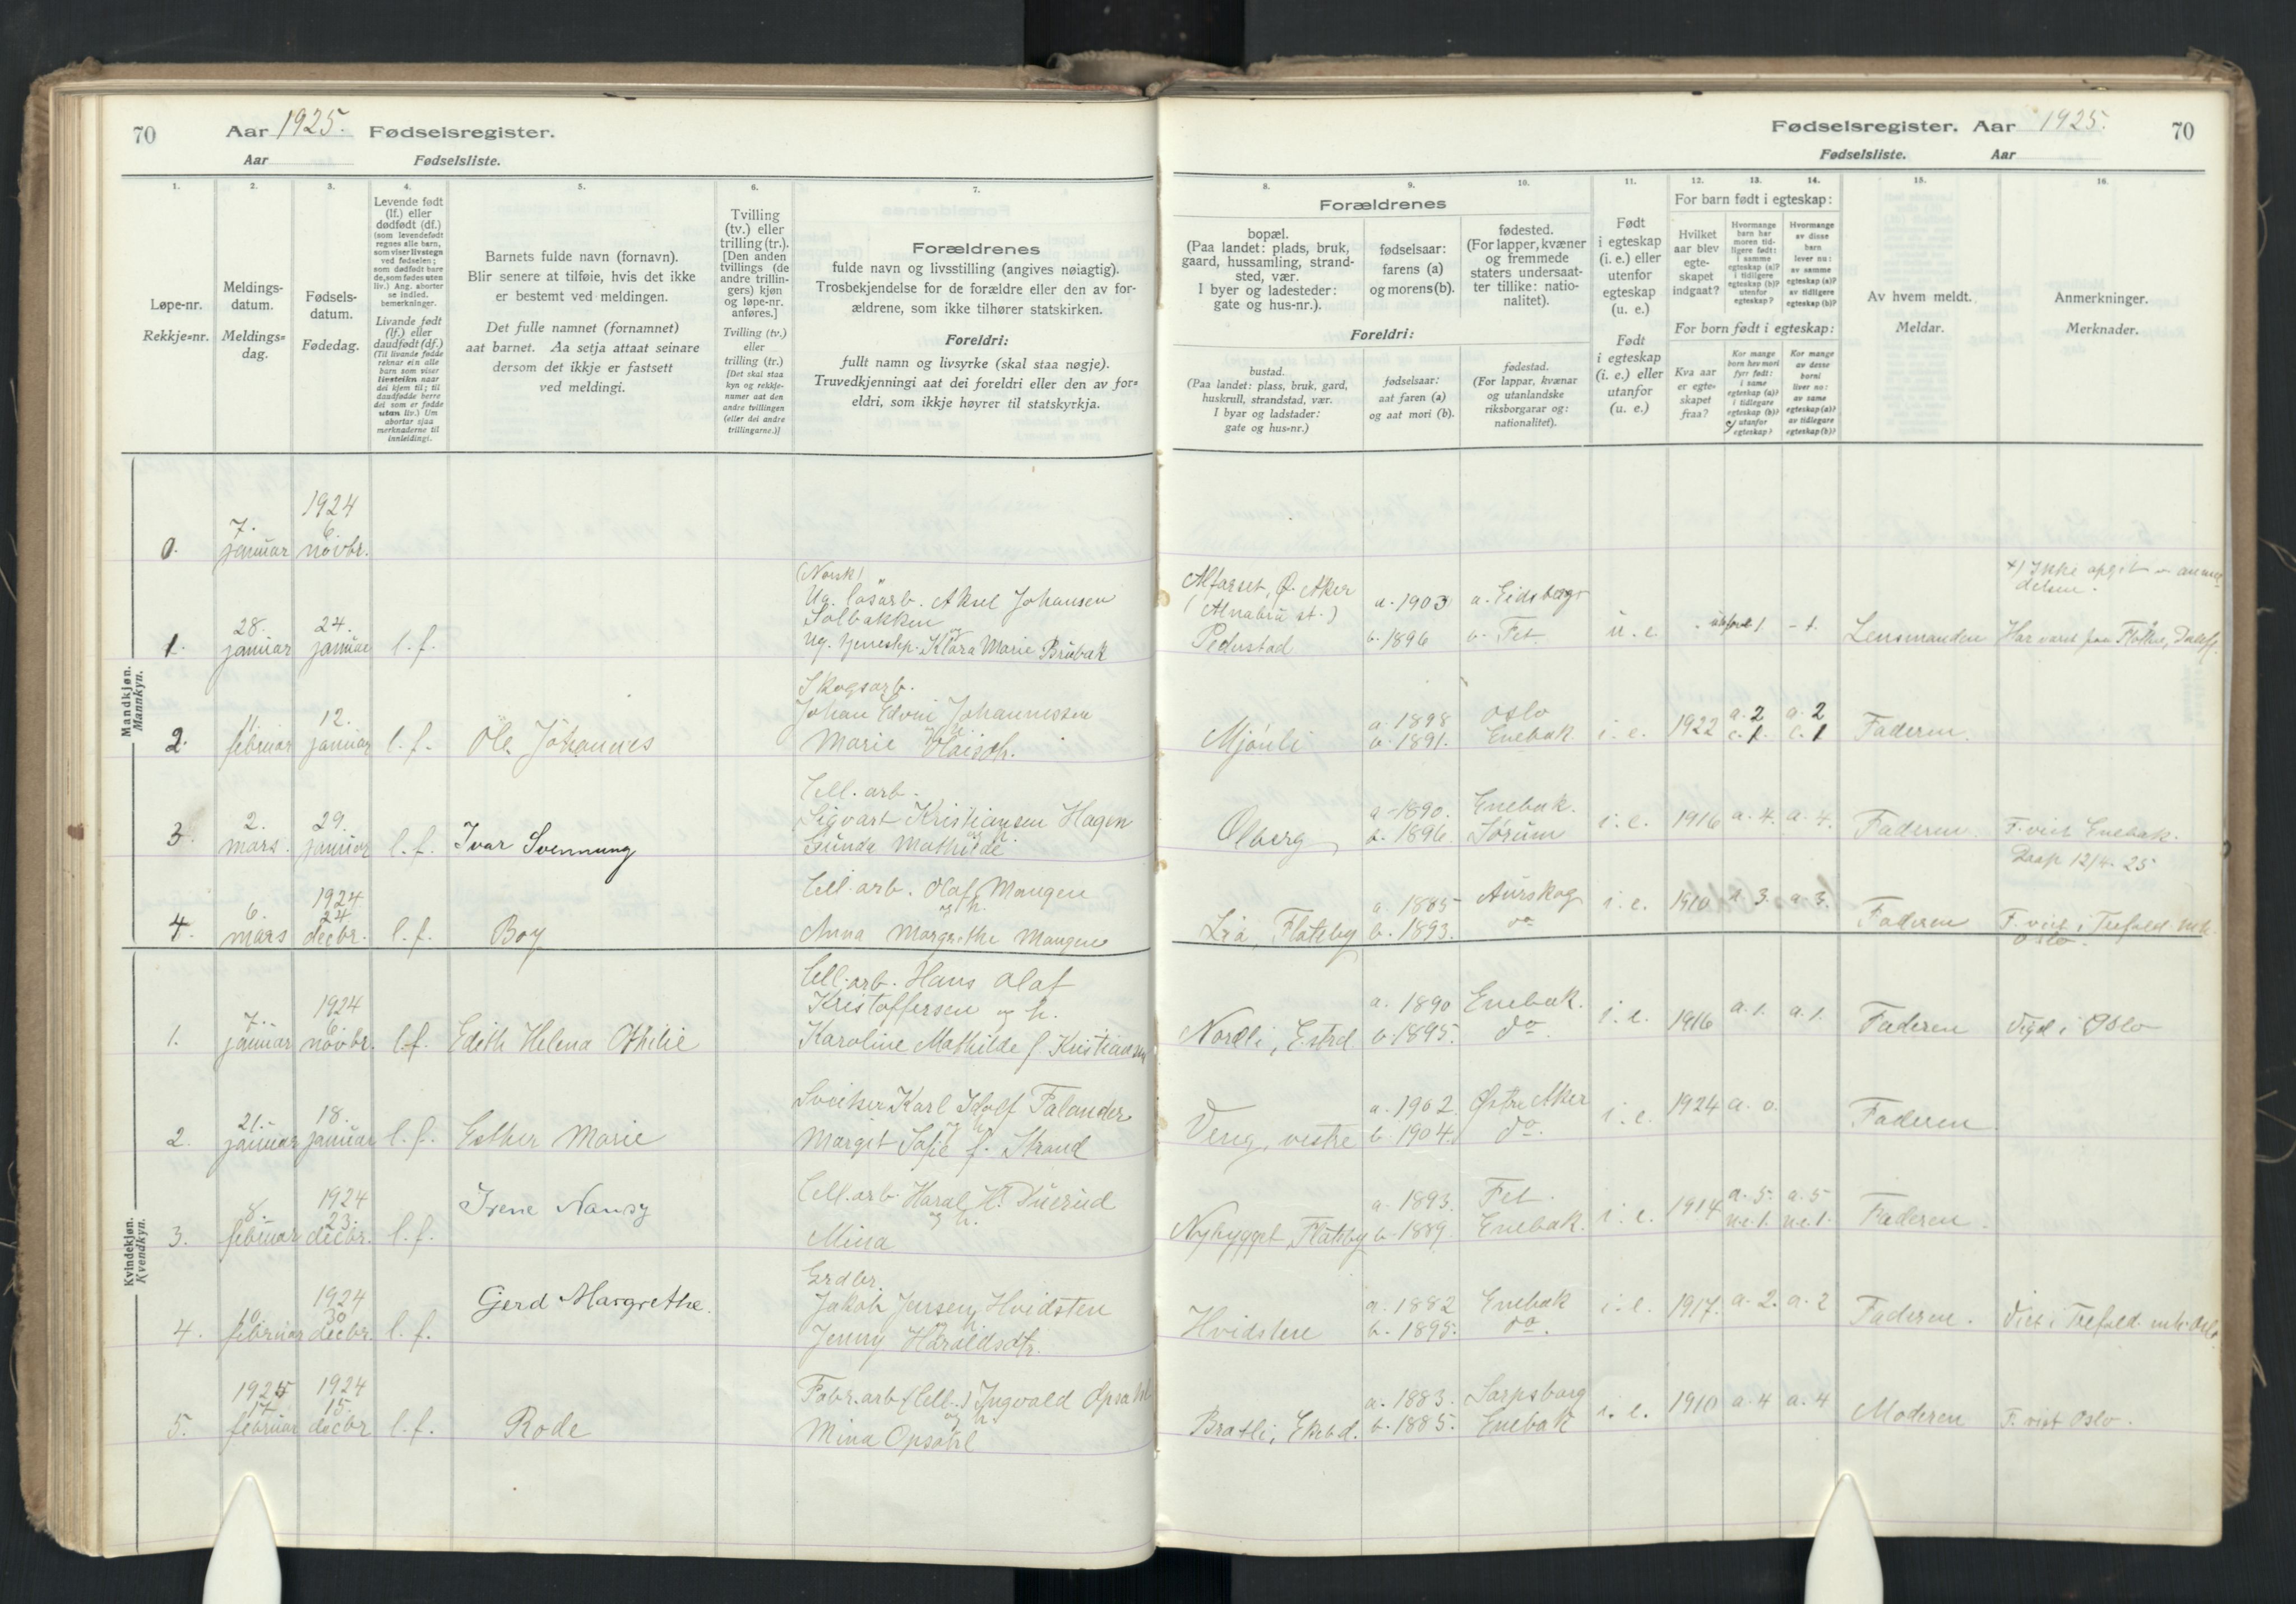 70 Aar 1925. Fødselsregister.
Aar Fødselsliste.
1. 2. 3. 4. 5. 6. 7.
Løpe-nr.
Rekkje-nr.
Meldings-
datum.
Meldings-
dag.
Fødsels-
datum.
Fødedag.
Levende født
(lf.) eller
dødfødt (df.)
(som levendefødt
regnes alle barn,
som viser livstegn
ved fødselen;
som dødfødt bare
de, som fødes uten
liv.) Ang. aborter
se indled.
bemerkninger.
Livande født
(lf.) eller
daudfødt (df.)
(Til livande fødde
reknar ein alle
barn som viser
livsteikn naar
dei kjem til; til
daudfødde berre
dei som er fødde
utan liv.) Um
abortar sjaa
merknaderne til
innleidingi.
Barnets fulde navn (fornavn).
Blir senere at tilføie, hvis det ikke
er bestemt ved meldingen.
Det fulle namnet (fornamnet)
aat barnet. Aa setja attaat seinare
dersom det ikkje er fastsett
ved meldingi.
Tvilling
(tv.) eller
trilling (tr.).
[Den anden
tvillings (de
andre trillin-
gers) kjøn
og løpe-nr.
anføres.]
Tvilling (tv.)
eller
trilling (tr.)
[Det skal staa
kyn og rekkje-
numer aat den
andre tvillingen
(eller dei andre
trillingarne.)]
Forældrenes
fulde navn og livsstilling (angives nøiagtig).
Trosbekjendelse for de forældre eller den av for-
ældrene, som ikke tilhører statskirken.
Foreldri:
fullt namn og livsyrke (skal staa nøgje).
Truvedkjenningi aat dei foreldri eller den av for-
eldri, som ikkje høyrer til statskyrkja.
Mandkjøn.
Mannkyn.
1924
0. 7. januar 6. novbr.
(Norsk)
Ug. løsarb. Aksel Johansen
Solbakken og
1. 28. januar 24. januar l.f. Ug. tjenestep. Klara Marie Brubak
Skogsarb.
Johan Edvin Johannessen
og h.
2. 11. februar 12. januar l.f. Ole Johannes Marie
Cell. arb.
Sigvart Kristiansen Hagen
og h.
3. 2. mars. 29. januar l.f. Ivar Svennung Gunda Mathilde
1924
Cell. arb. Olaf Mangen
og h.
4. 6. mars 24 decbr. l.f. Boy Anna Margrethe Mangen
Kvindekjøn.
Kvendkyn.
1924
Cell. arb. Hans Olaf
Kristoffersen og h.
1. 7. januar 6. novbr. l.f. Edith Helena Othilie Karoline Mathilde f. Kristiansen
Karl Falander
og h.
2. 21. januar 18. januar l.f. Esther Marie Margit Sofie f. Strand
1924
Irene Nansy
Cell. arb. Harald H.
og h.
3. 8. februar 23. decbr. l.f. Mina
1924
Gjerd Margrethe.
Grdbr.
Jakob Jensen Hvidsten
og h.
4. 10 februar 30 decbr. l.f. Jenny Haraldsdtr.
1925 1924
Fabr.arb. (Cell.) Ingvald Opsahl
og h.
5. 17 februar 15. decbr l.f. Rode Mina Opsahl
Fødselsregister. Aar 1925. 70
Fødselsliste. Aar
8. 9. 10. 11. 12. 13. 14. 15. 16.
Forældrenes
bopæl.
(Paa landet: plads, bruk,
gaard, hussamling, strand-
sted, vær.
I byer og ladesteder:
gate og hus-nr.).
fødselsaar:
farens (a)
og morens (b).
fødested.
(For lapper, kvæner
og fremmede
staters undersaat-
ter tillike: natio-
nalitet).
Foreldri:
bustad.
(Paa landet: plass, bruk, gard,
huskrull, strandstad, vær.
I byar og ladstader:
gate og hus-nr.)
fødselsaar:
aat faren (a)
og aat mori (b).
fødestad.
(For lappar, kvænar
og utanlandske
riksborgarar og:
nationalitet).
Født
i egteskap
(i. e.) eller
utenfor
egteskap
(u. e.)
Født
i egteskap
(i. e.) eller
utanfor
(u. e.)
For barn født i egteskap:
Hvilket
aar blev
egte-
skapet
indgaat?
Hvormange
barn har
moren tid-
ligere født:
i samme
egteskap (a)?
i tidligere
egteskap (b)?
utenfor
egteskap?
Hvormange
av disse
barn
lever nu:
av samme
egteskap (a)?
av tidligere
egteskap (b)?
For born født i egteskap:
Kva aar
er egte-
skapet
fraa?
Kor mange
born hev mori
fyrr født:
i same
egteskap (a)?
i tidlegare
egteskap (b)?
c) utanfor
egteskap?
Kor mange
av desse
borni
liver no:
av same
egteskap (a)?
av tidlegare
egteskap (b)?
Av hvem meldt.
Meldar.
Anmerkninger.
Merknader.
Alfarset, Ø. Aker a. 1903 a. Eidsberg x) Ikke opgit
(Alnabru st.)
b. 1896 b. Fet u. e. 1 - 1. Lensmanden Har været paa
a. 1898 Oslo a. 2 a. 2
Mjønli b. 1891. Enebak i. e. 1922 c. 1. c. 1 Faderen.
a. 1890. Enebak.
Olberg b. 1896. Sørum i. e. 1916 a. 4. a. 4. Faderen. F. viet Enebak.
Daap 12/4. 25
a. 1885 Aurskog
Lia, Flateby b. 1893. do i. e. 1910 a. 3. a. 3. Faderen F. viet i Trefold. mk.
Oslo.
a. 1890 Enebak.
Nordli, b. 1895. do. i. e. 1916 a. 1. a. 1. Faderen Viet i Oslo
a. 1902. Østre Aker
Veng, vestre b. 1904. do. i. e. 1924 a. 0. Faderen
a. 1893. Fet. a. 5. a. 5
Nybygget, Flateby b. 1889. Enebak. i. e. 1914 u.e. 1. u.e. 1. Faderen.
a. 1882 Enebak
Hvidsten b. 1895. do. i. e. 1917. a. 2. a. 2 Faderen. Viet i Trefold. mk. Oslo
a. 1883. Sarpsborg
Bratli, b. 1885. Enebak i. e. 1910 a. 4 a. 4 Moderen F. viet Oslo.